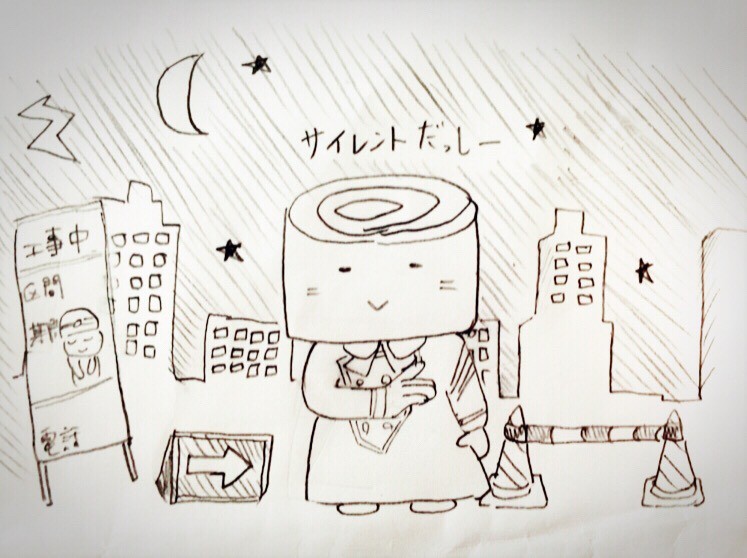 サイレントだっしー
工事中
区間
期間
電話